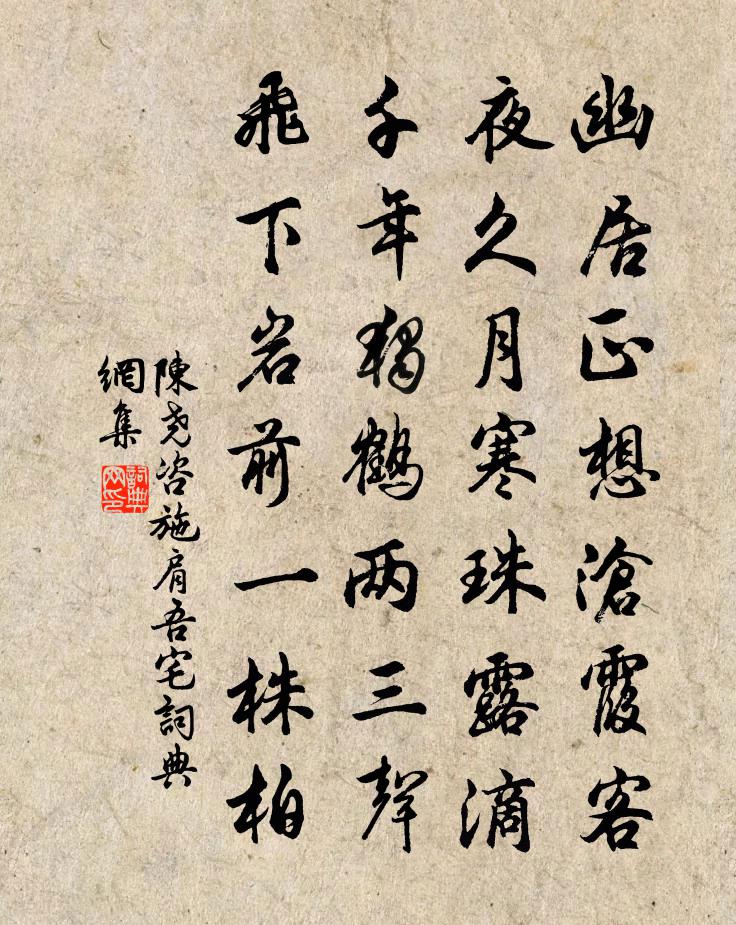 幽居正想滄霞客
夜久月寒珠露滴
千年獨鶴两三聲
飛下岩前一株柏
陳堯咨施肩吾宅詞典
網集
詞典
网印